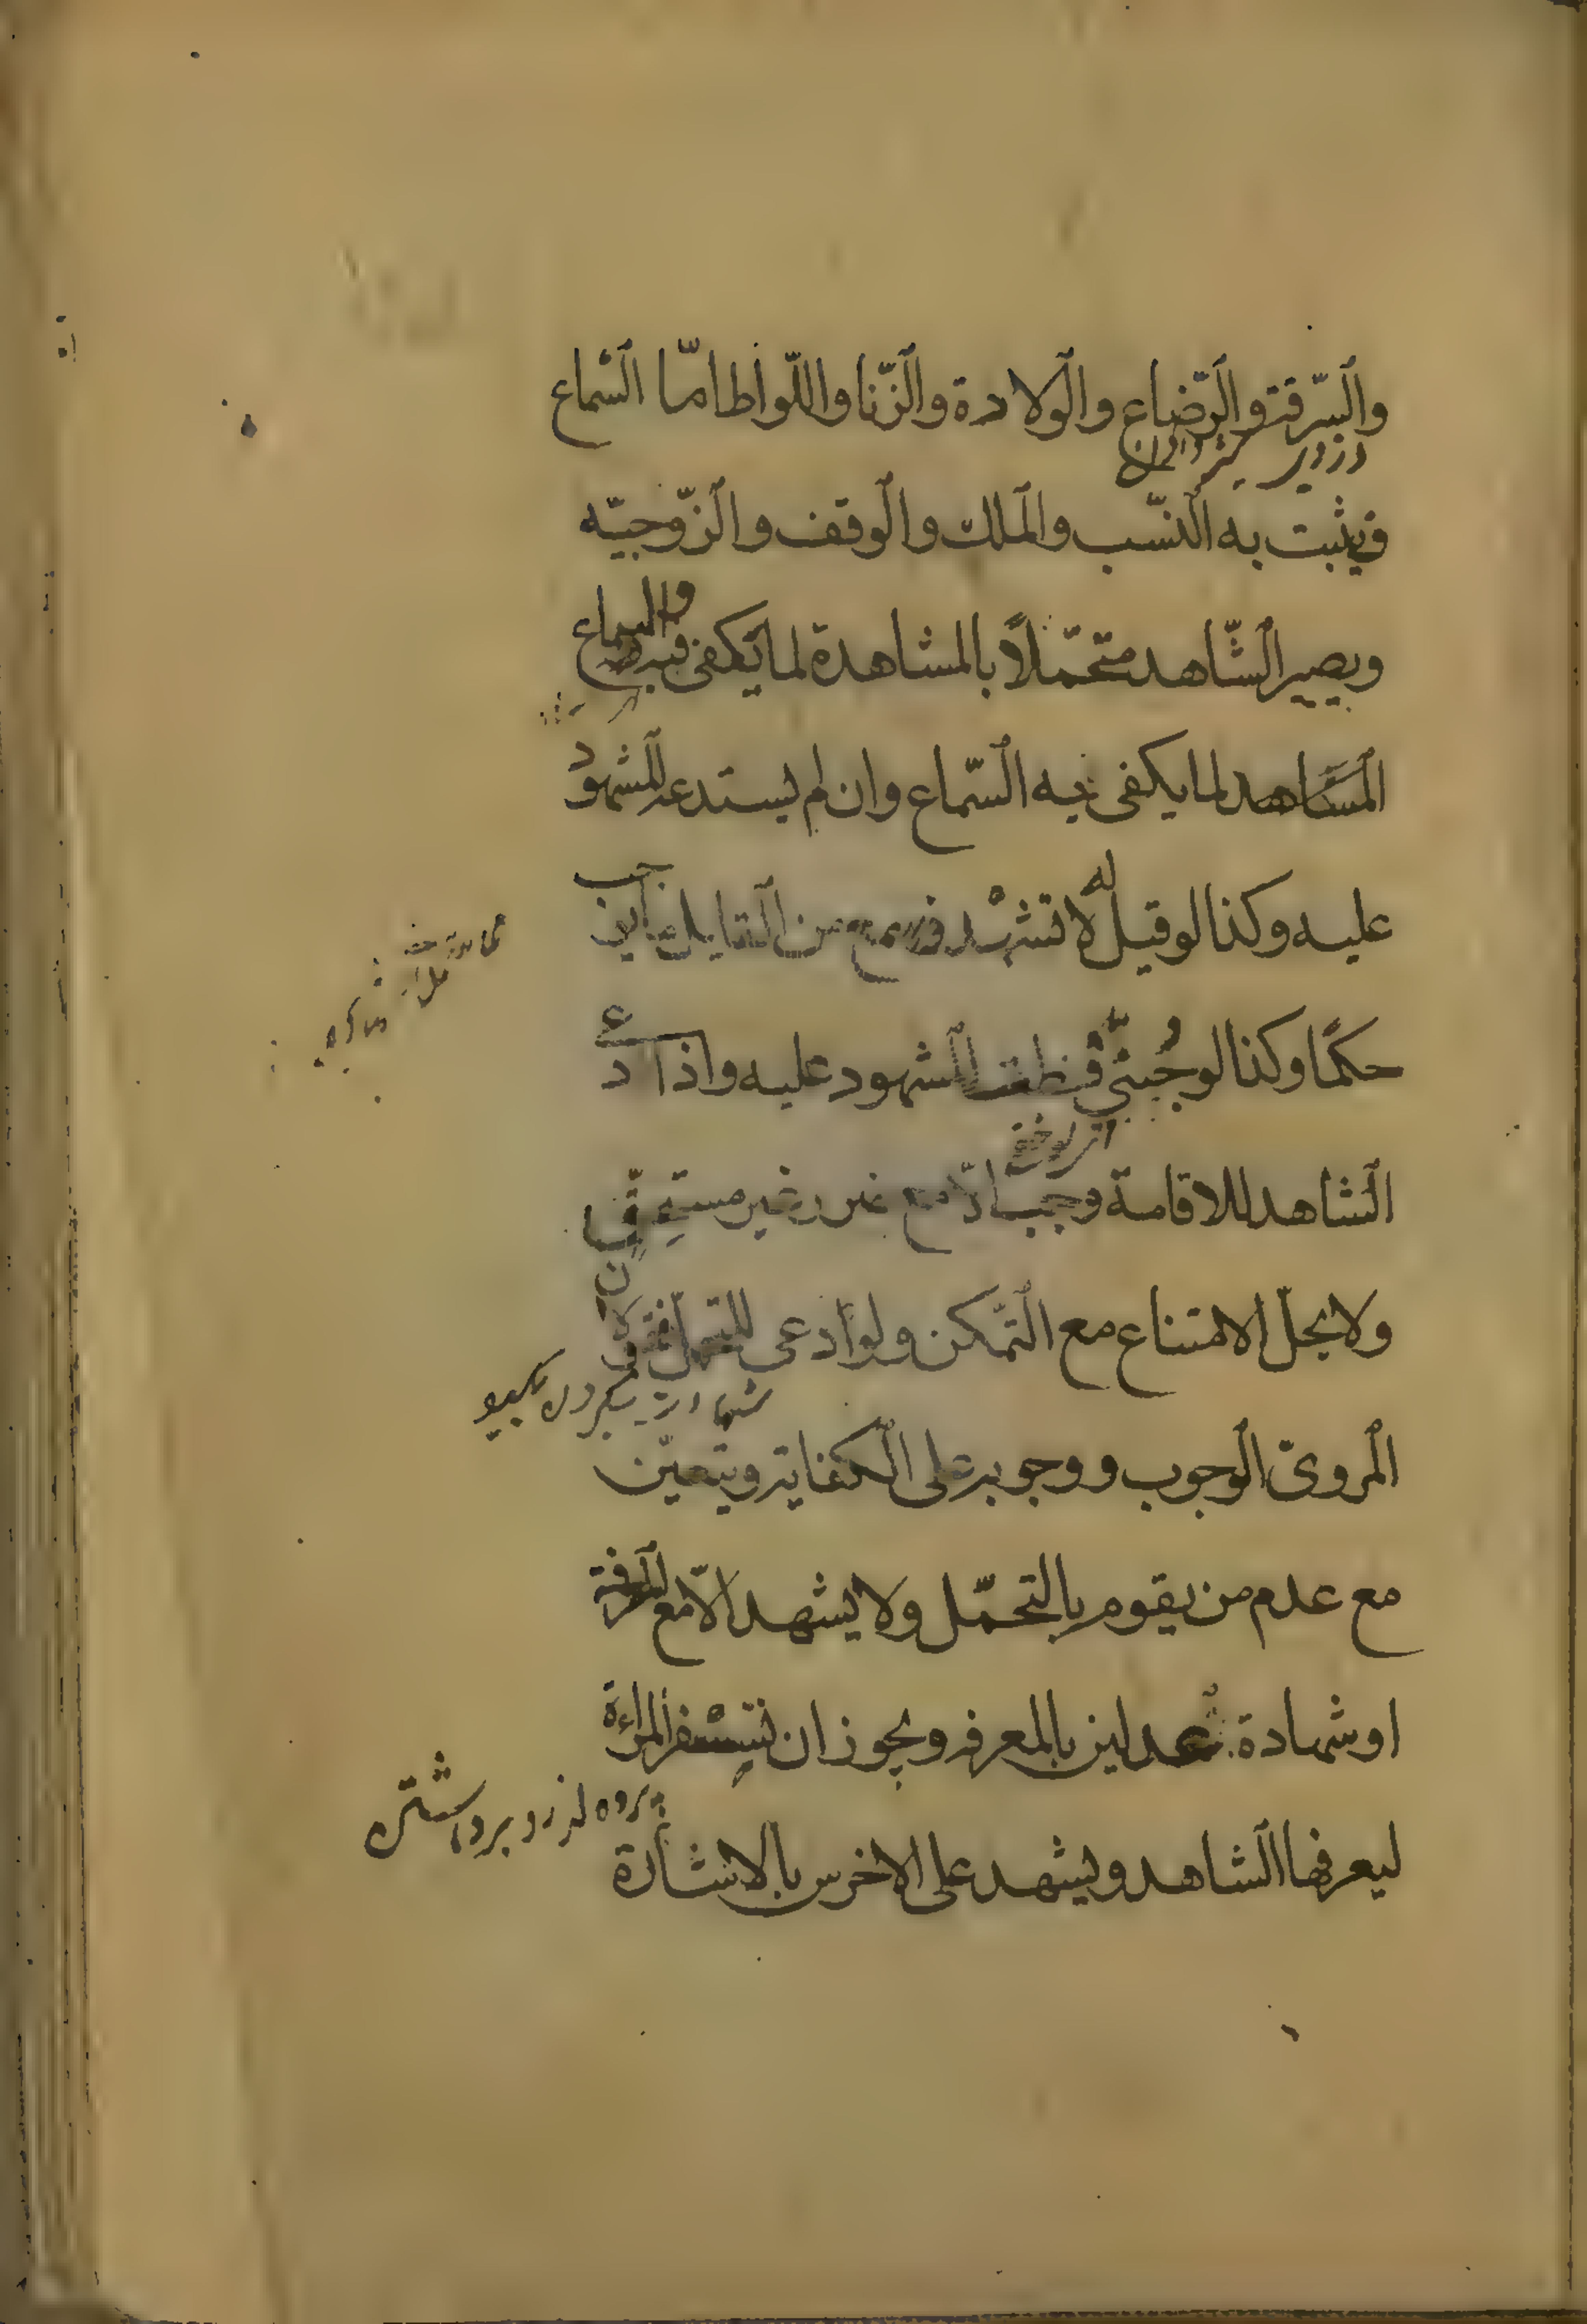 والسّرقة والرّضاع والولادة والزّنا واللّواط امّا السّماع
دزدی شیر دادن
فیثبت به النّسب والملك والوقف والزّوجیّه
ویصیر الشّاهد متحمّلاً بالمشاهدة لما یکفی فیه
والسماع
المشاهد لما یکفی فیه السّماع وان لم یستدعه المشهود
علیه وکذا لو قیل له لا تشهد فسمع من القایل ما یوجب
حکمًا وکذا لو خُبّئ فنطق المشهود علیه واذا دعی
الشاهد للاقامة وجب الّا مع ضرر غیر مستحقّ
ولا یحلّ الامتناع مع التمّکن ولو ادعی للتحمل ففی
المرویّ الوجوب ووجوبه علی الکفایة ویتعیّن
مع عدم من یقوم بالتحمّل ولا یشهد الّا مع المعرفة
او شهادة عدلین بالمعرفه ویجوز ان تسفر المراءة
لیعرفها الشاهد ویشهد علی الاخرس بالاشارة